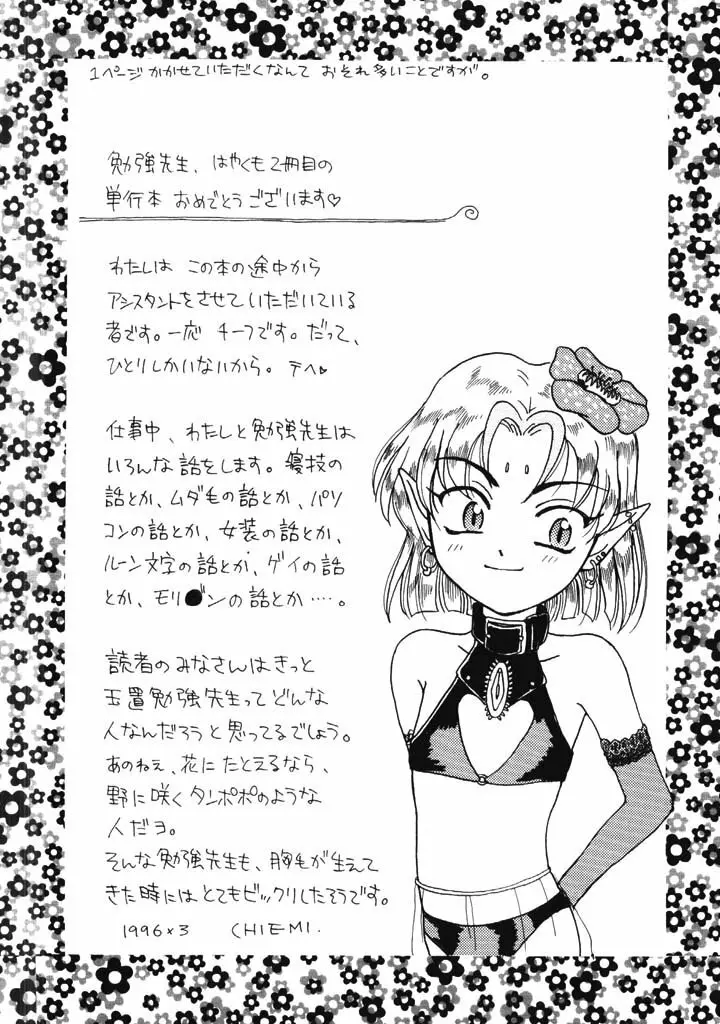 1ページかかせていただくなんて おそれ多いことですが。
勉強先生、はやくも2冊目の
単行本 おめでとうございます♡
わたしは この本の途中から
アシスタントをさせていただいている
者です。一応 チーフです。だって、
ひとりしかいないから。テヘ♥
仕事中、わたしと勉強先生は
いろんな話をします。寝技の
話とか、ムダ毛の話とか、パソ
コンの話とか、女装の話とか、
ルーン文字の話とか、ゲイの話
とか、モリ●ンの話とか‥‥。
読者のみなさんはきっと
玉置勉強先生ってどんな
人なんだろうと思ってるでしょう。
あのねぇ、花にたとえるなら、
野に咲くタンポポのような
人だヨ。
そんな勉強先生も、胸毛が生えて
きた時にはとてもビックリしたそうです。
1996×3 CHIEMI.